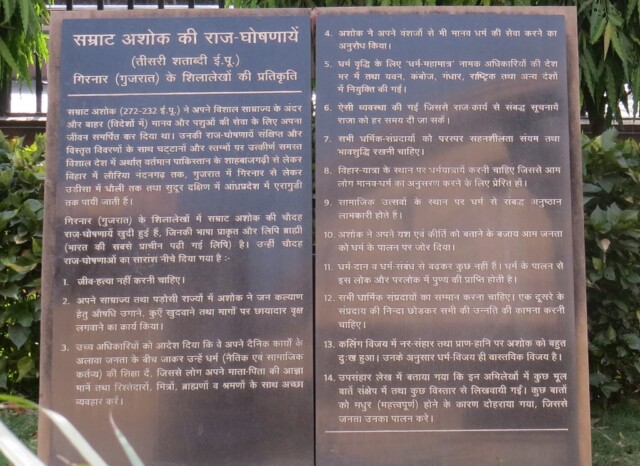 सम्राट अशोक की राज-घोषणायें
(तीसरी शताब्दी ई.पू.)
गिरनार (गुजरात) के शिलालेखों की प्रतिकृति
सम्राट अशोक (272-232 ई.पू.) ने अपने विशाल साम्राज्य के अंदर
और बाहर (विदेशों में) मानव और पशुओं की सेवा के लिए अपना
जीवन समर्पित कर दिया था। उनकी राज-घोषणायें संक्षिप्त और
विस्तृत विवरणों के साथ चट्टानों और स्तम्भों पर उत्कीर्ण समस्त
विशाल देश में अर्थात् वर्तमान पाकिस्तान के शाहबाजगढ़ी से लेकर
बिहार में लौरिया नंदनगढ़ तक, गुजरात में गिरनार से लेकर
उड़ीसा में धौली तक तथा सुदूर दक्षिण में आंध्रप्रदेश में एरागुडी
तक पायी जाती है।
गिरनार (गुजरात) के शिलालेखों में सम्राट अशोक की चौदह
राज-घोषणायें खुदी हुई हैं, जिनकी भाषा प्राकृत और लिपि ब्राह्मी
(भारत की सबसे प्राचीन पढ़ी गई लिपि) है। उन्हीं चौदह
राज-घोषणाओं का सारांश नीचे दिया गया है :-
1. जीव-हत्या नहीं करनी चाहिए।
2. अपने साम्राज्य तथा पड़ोसी राज्यों में अशोक ने जन कल्याण
हेतु औषधि उगाने, कुएँ खुदवाने तथा मार्गों पर छायादार वृक्ष
लगवाने का कार्य किया।
3. उच्च अधिकारियों को आदेश दिया कि वे अपने दैनिक कार्यों के
अलावा जनता के बीच जाकर उन्हें धर्म (नैतिक एवं सामाजिक
कर्तव्य) की शिक्षा दें, जिससे लोग अपने माता-पिता की आज्ञा
मानें तथा रिश्तेदारों, मित्रों, ब्राह्मणों व श्रमणों के साथ अच्छा
व्यवहार करें।
4. अशोक ने अपने वंशजों से भी मानव धर्म की सेवा करने का
अनुरोध किया।
5. धर्म वृद्धि के लिए 'धर्म-महामात्र' नामक अधिकारियों की देश
भर में तथा यवन, कंबोज, गंधार, राष्ट्रिक तथा अन्य देशों
में नियुक्ति की गई।
6. ऐसी व्यवस्था की गई जिससे राज-कार्य से संबद्ध सूचनायें
राजा को हर समय दी जा सकें।
7. सभी धर्मिक-संप्रदायों को परस्पर सहनशीलता संयम तथा
भावशुद्धि रखनी चाहिए।
8. विहार-यात्रा के स्थान पर धर्मयात्रायें करनी चाहिए जिससे आम
लोग मानव-धर्म का अनुसरण करने के लिए प्रेरित हों।
9. सामाजिक उत्सवों के स्थान पर धर्म से संबद्ध अनुष्ठान
लाभकारी होते है।
10. अशोक ने अपने यश एवं कीर्ति को बताने के बजाय आम जनता
को धर्म के पालन पर जोर दिया।
11. धर्म-दान व धर्म-संबंध से बढ़कर कुछ नहीं है। धर्म के पालन से
इस लोक और परलोक में पुण्य की प्राप्ति होती है।
12. सभी धार्मिक संप्रदायों का सम्मान करना चाहिए। एक दूसरे के
संप्रदाय की निन्दा छोडकर सभी की उन्नति की कामना करनी
चाहिए।
13. कलिंग विजय में नर-संहार तथा प्राण-हानि पर अशोक को बहुत
दुःख हुआ। उनके अनुसार धर्म-विजय ही वास्तविक विजय है।
14. उपसंहार लेख में बताया गया कि इन अभिलेखों में कुछ मूल
बातें संक्षेप में तथा कुछ विस्तार से लिखवायी गई। कुछ बातों
को मधुर (महत्त्वपूर्ण) होने के कारण दोहराया गया, जिससे
जनता उनका पालन करे।